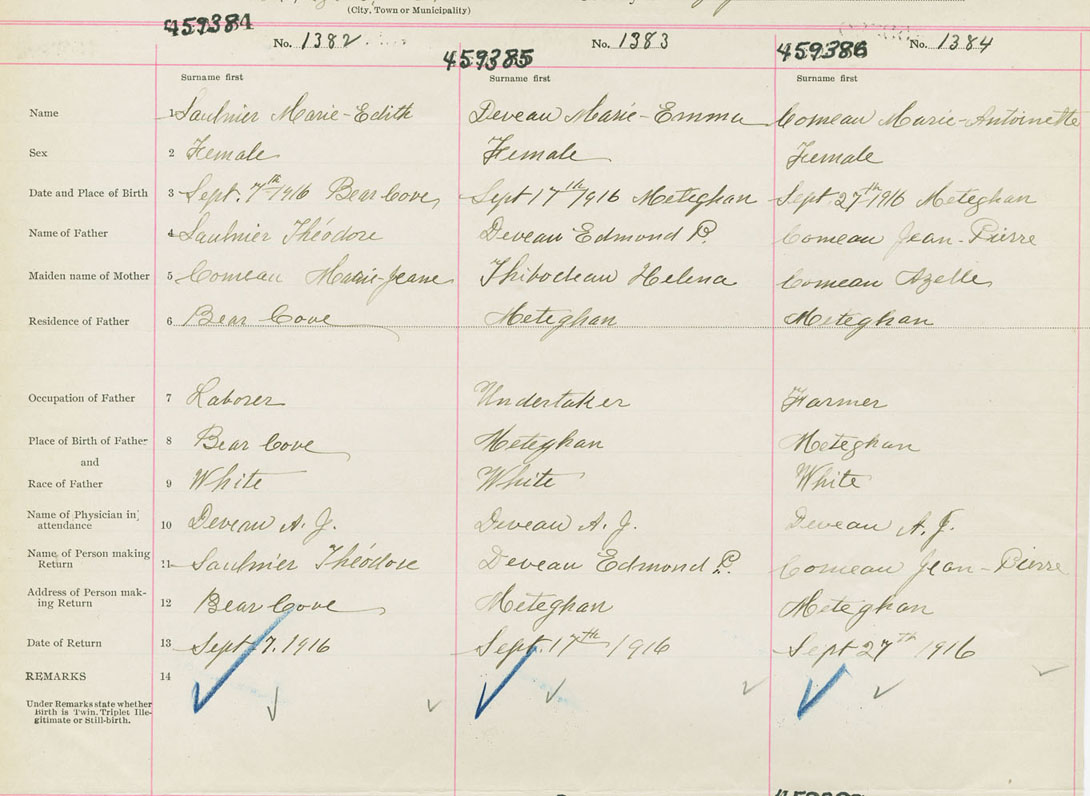 (City, Town or Municipality)
459384 No. 1382 459385 No. 1383 459386 No. 1384
Surname first Surname first Surname first
Name 1 Saulnier Marie-Edith Deveau Marie-Emma Comeau Marie-Antoinette
Sex 2 Female Female Female
Date and Place of Birth 3 Sept. 7th 1916 Bear Cove Sept 17th 1916 Meteghan Sept 27th 1916 Meteghan
Name of Father 4 Saulnier Théodore Deveau Edmond P. Comeau Jean-Pierre
Maiden name of Mother 5 Comeau Marie-Jeane Thibodeau Helena Comeau Azelle
Residence of Father 6 Bear Cove Meteghan Meteghan
Occupation of Father 7 Laborer Undertaker Farmer
Place of Birth of Father 8 Bear Cove Meteghan Meteghan
and
Race of Father 9 White White White
Name of Physician in
attendance 10 Deveau A. J. Deveau A. J. Deveau A. J.
Name of Person making
Return 11 Saulnier Théodore Deveau Edmond P. Comeau Jean-Pierre
Address of Person mak-
ing Return 12 Bear Cove Meteghan Meteghan
Date of Return 13 Sept 7. 1916 Sept. 17th 1916 Sept 27th 1916
REMARKS 14
Under Remarks state whether
Birth is Twin, Triplet Ille-
gitimate or Still-birth.